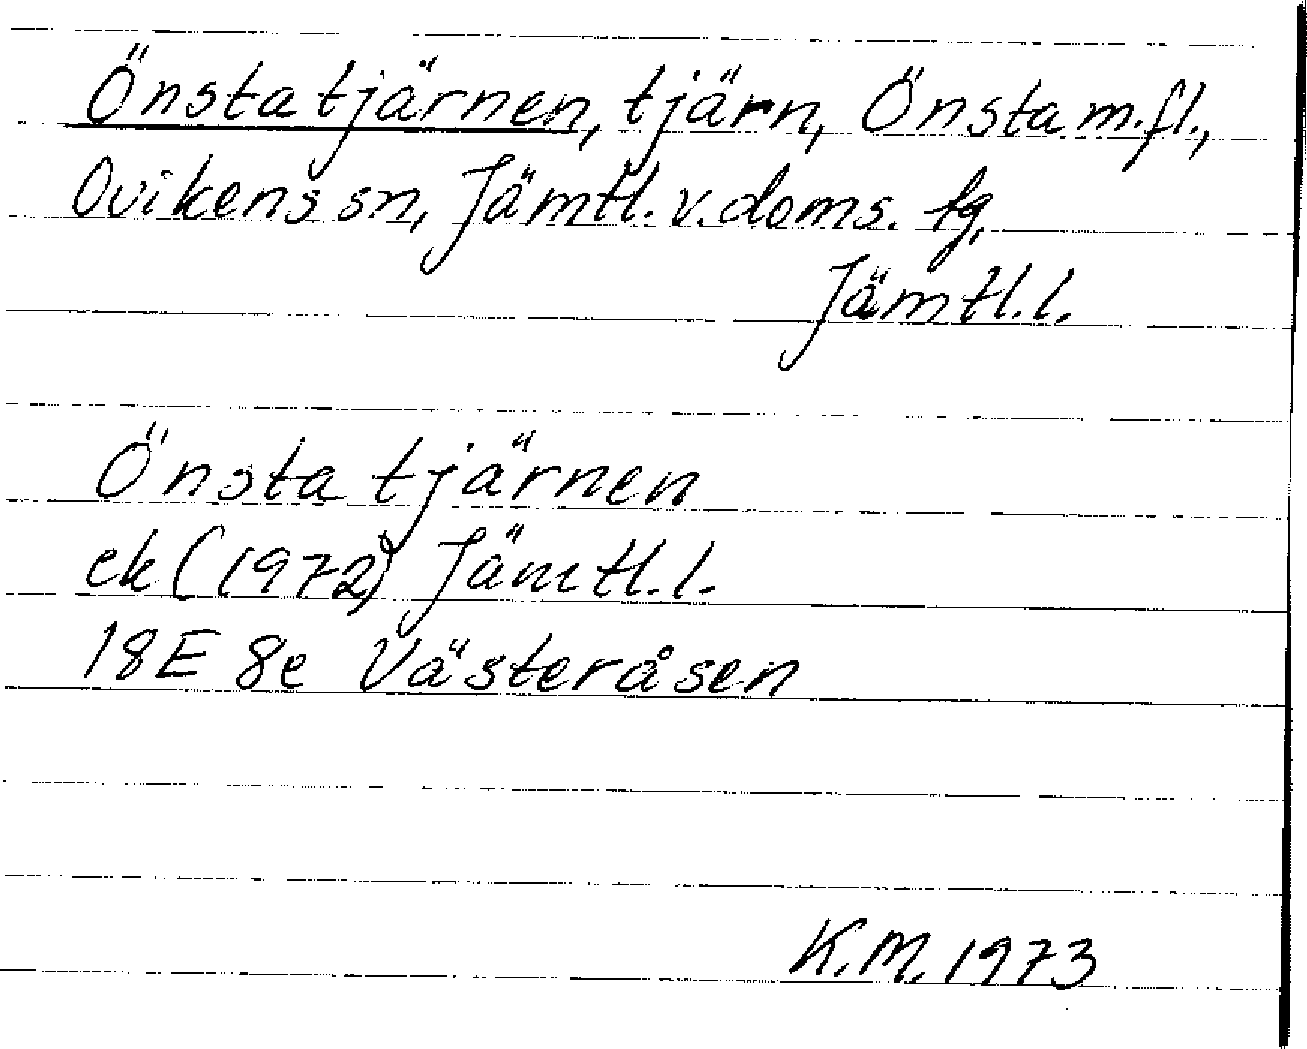 Önstatjärnen, tjärn, Önsta m.fl.,
Ovikens sn, Jämtl. v. doms. tg,
Jämtl. l.
Önstatjärnen
ek (1972) Jämtl. l.
18E 8e Västeråsen
K.M. 1973